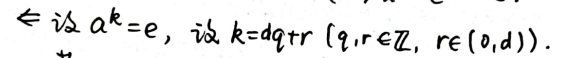 ⇐ 设 a^k=e, 设 k=dq+r (q,r∈ℤ, r∈(0,d)).